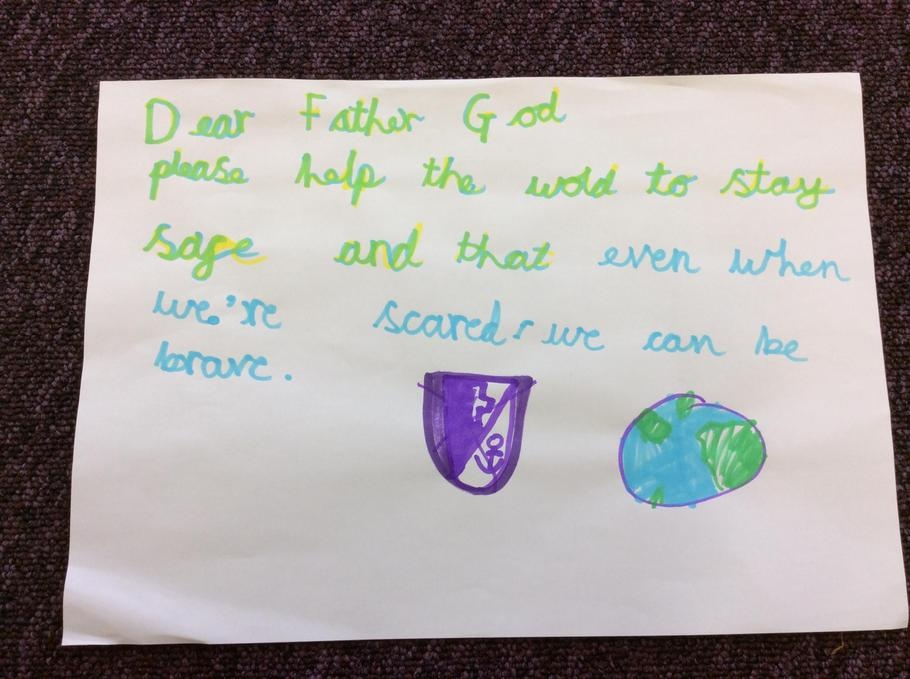 Dear Father God
please help the wold to stay
safe and that even when
we're scared, we can be
brave.